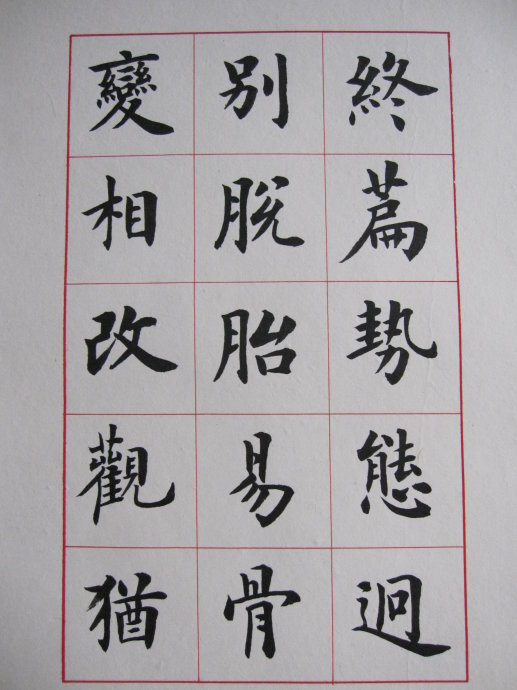 終篇勢態迥
别脱胎易骨
變相改觀猶